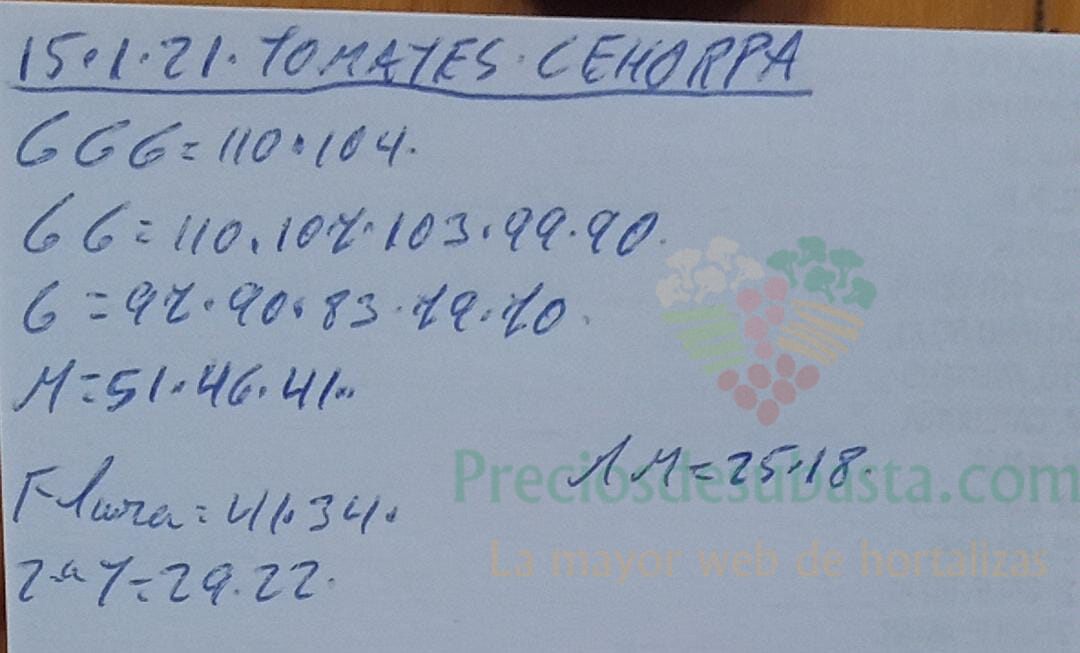 15.1.21. TOMATES. CEHORPA
GGG = 110.104.
GG = 110.107.103.99.90.
G = 97.90.83.79.70.
M = 51.46.41..
MM = 25.18.
Flora = 41.34.
2ª T = 29.22.
Preciosdesubasta.com
La mayor web de hortalizas